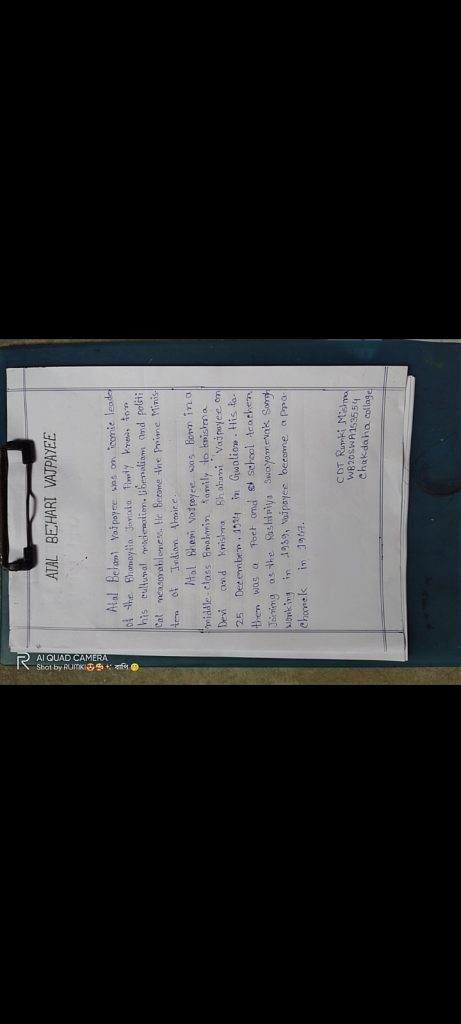 ATAL BEHARI VAJPAYEE
Atal Behari Vajpayee was an iconic leade
of the Bharnayita Janata family known for
his cultural moderation, liberalism and politi
cal reasonableness. He Became the prime Minis
ter of Indian thrice.
Atal Bhari Vajpayee was Born in a
middle-class Brahmin family to krishna
Devi and krishna Bhahari Vajpayee on
25 December. 1924 in Gwalior. His fa-
ther was a Poet and a school teacher
Joining as the Rashtriya Swayamsevak Sangh
working in 1939, Vajpayee become a pra-
charek in 1947.
CDT Rumki Mishra
WB20SWA153554
Chakdaha collage
AI QUAD CAMERA
Shot by RUMKI😍🥰✨ বাপি 🤭